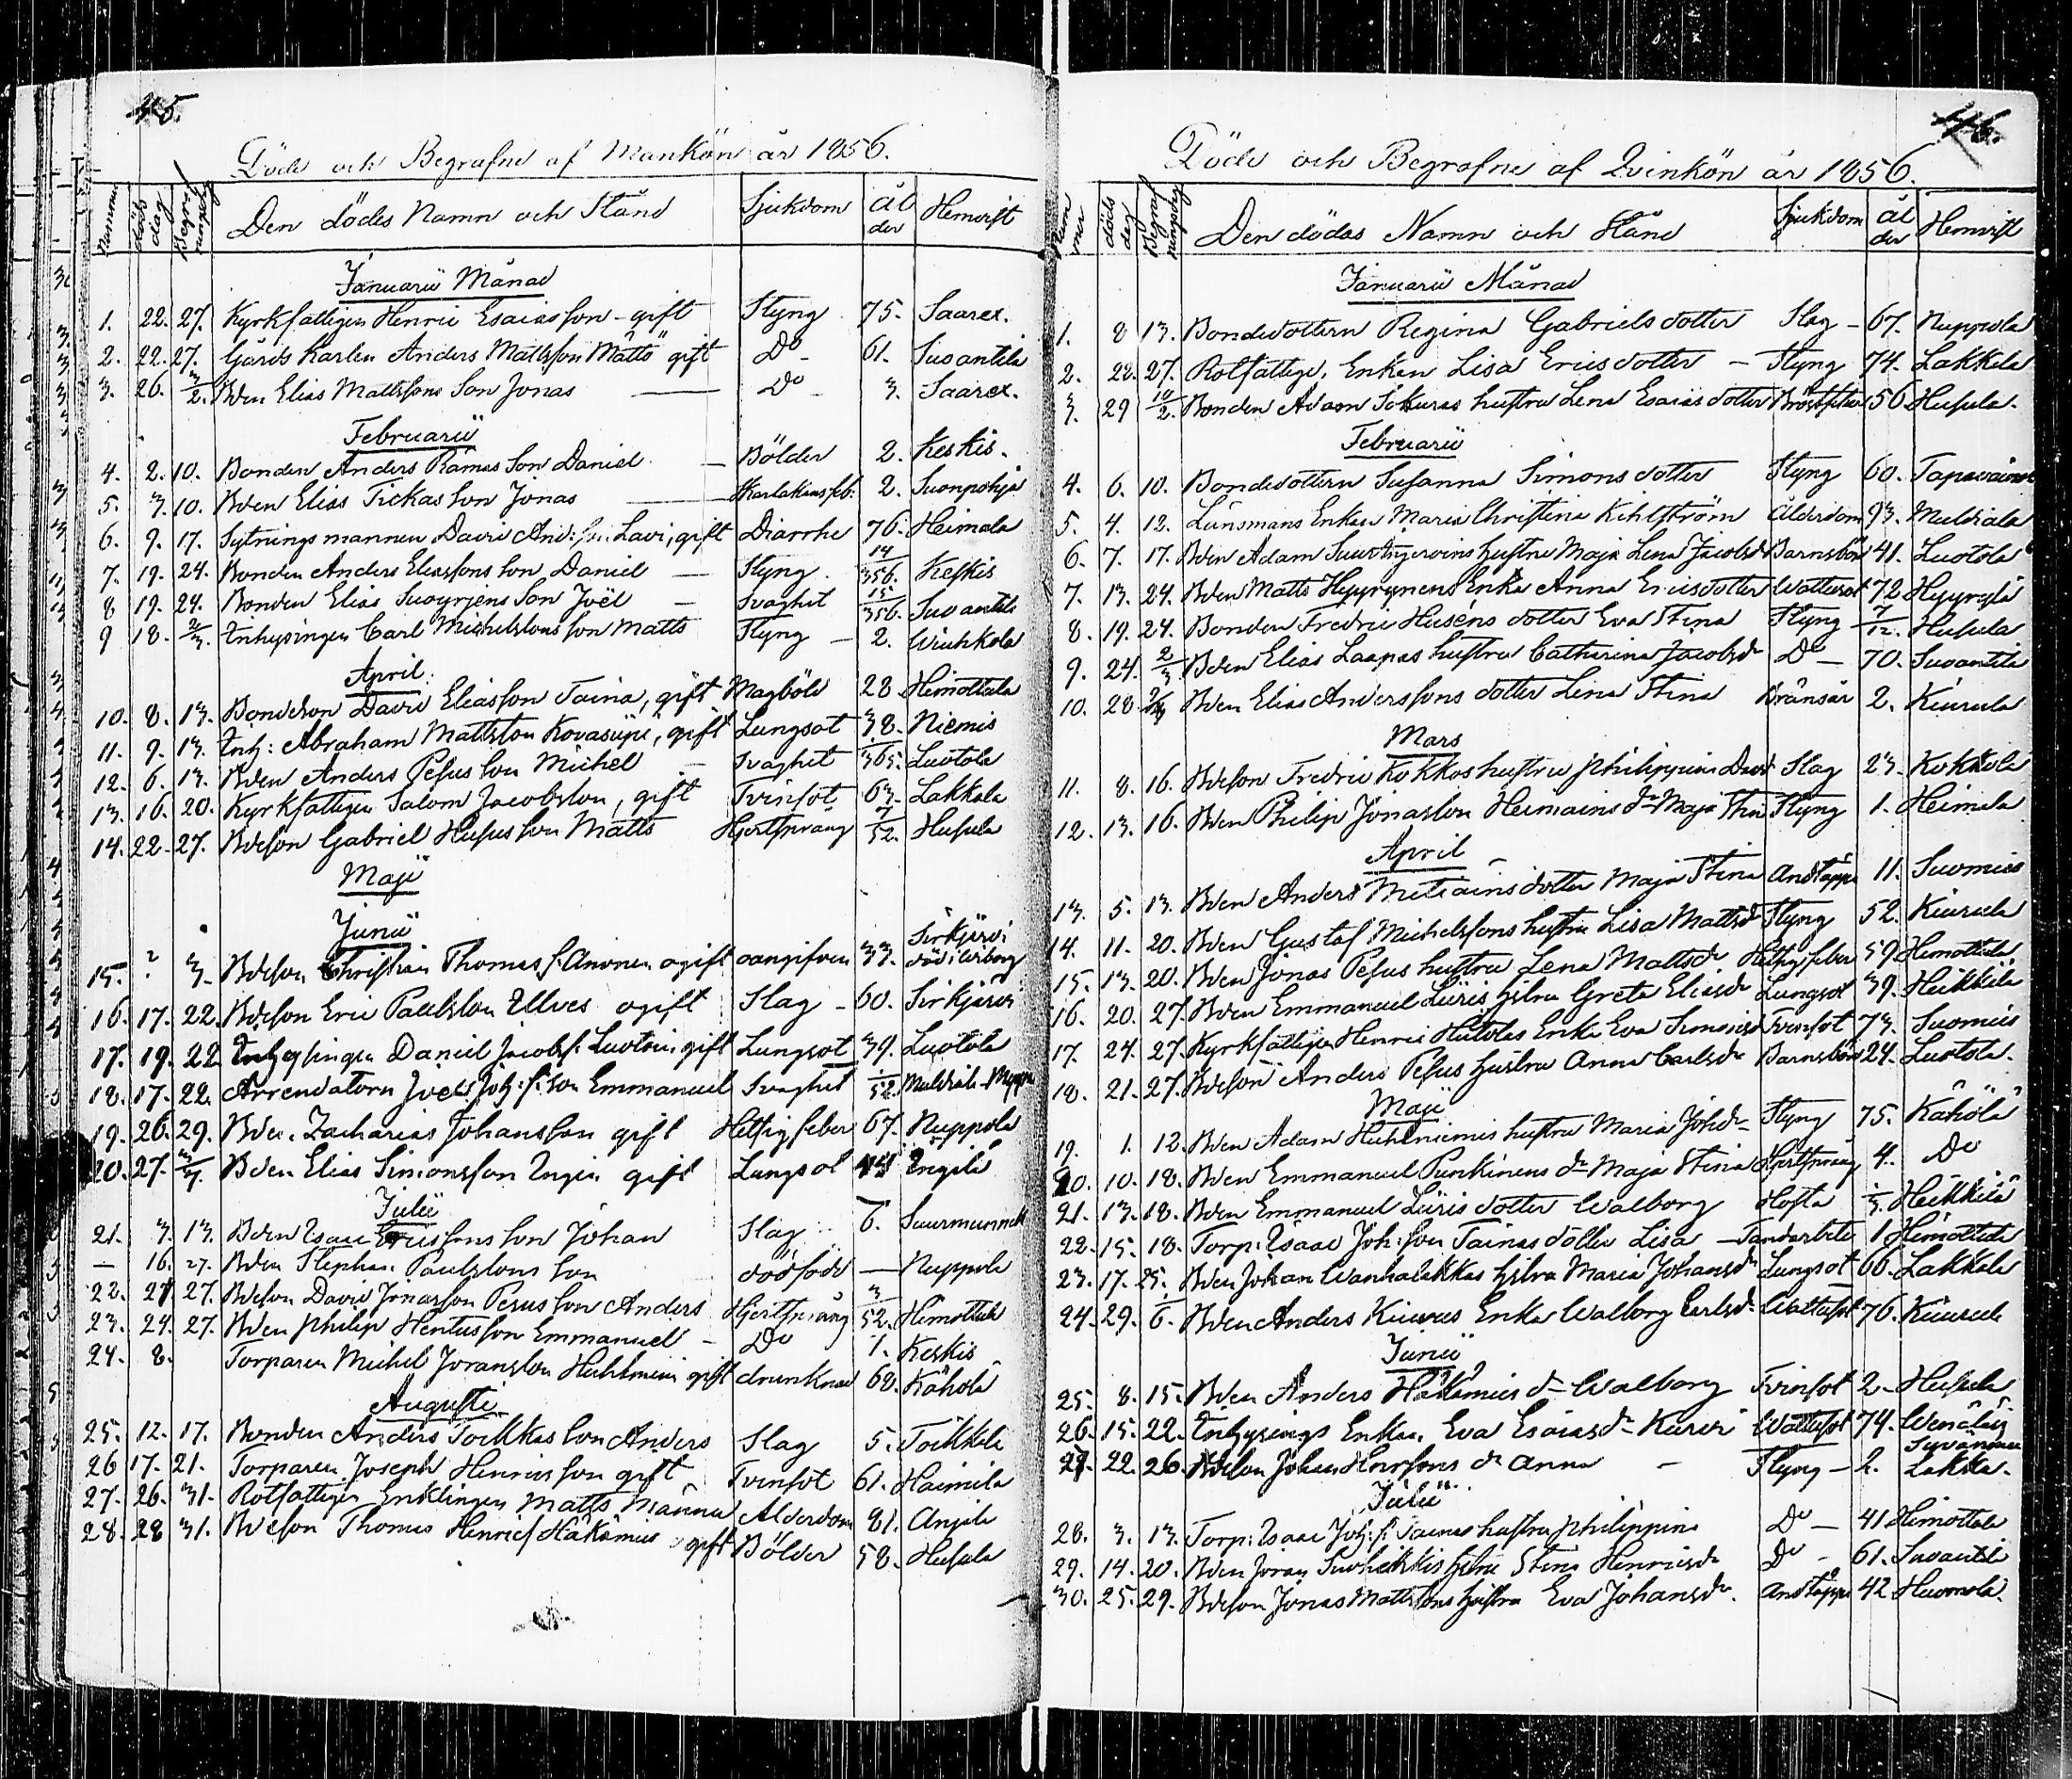 45.
Döde och Begrafne af Mankön år 1856.
Nummer döds dag Begrafningsdag Den dödes Namn och Stånd Sjukdom Ålder Hemvist
Januarii Månad
1. 22. 27. Kyrkfattigen Henric Esaiasson - gift Styng 75. Saarex.
2. 22. 27. Gårds Karlen Anders Mattsson Mättö gift Do - 61. Suoantila
3. 26. 3/2. Bden Elias Mattssons Son Jonas — Do - 3. Saarex.
Februarii
4. 2. 10. Bonden Anders Rämes Son Daniel — Bölder 2. Keskis.
5. 3. 10. Bden Elias Tickas Son Jonas — Skarlakansfeb: 2. Suonpohja
6. 9. 17. Sytningsmannen David And: son Lavi, gift Diarrhe 76. Heimala
7. 19. 24. Bonden Anders Eliassons Son Daniel — Styng. 14/356. Keskis
8 19. 24. Bonden Elias Suoyrjens Son Joël — Svaghet 15/356. Suoantila
9 18. 2/3. Inhysingen Carl Michelssons son Matts Styng — 2. Wiuhkola
April.
10. 8. 13. Bondeson David Eliasson Taina, gift Magböld 28 Himottala
11. 9. 13. Inh: Abraham Mattsson Kovasiipi, gift Lungsot 38. Niemis
12. 6. 13. Bden Anders Pesus Son Michel — Svaghet 1/365. Luotola
13. 16. 20. Kyrkfattigen Salom Jacobsson, gift Tvinsot 63. Lakkala
14. 22. 27. Bdeson Gabriel Husus Son Matts Hjertsprång 7/52. Husula
Maji
Junii
15. ? 3. Bdeson Christian Thomas s. Anonen ogift oangifven 33. Sirkjärvi död i Wiborg
16. 17. 22. Bdeson Eric Paulsson Ulves ogift Slag - 60. Sirkjärvi
17. 19. 22 Inhysingen Daniel Jacobs s. Luotoin gift Lungsot 39. Luotola
18. 17. 22. Arrendatorn Joels Joh: s. son Emmanuel Svaghet 1/52. Muldiala
19. 26. 29. Bden. Zacharias Johansson gift Hetsig feber 67. Nuppola
20. 27. 3/7. Bden Elias Simonsson Ingin gift Lungsot Ingilä
Julii
21. 3. 13. Bden Isaac Ericssons Son Johan Slag 6. Suurmunneli
— 16. 27. Bden Stephan Paulssons Son dödfödd — Nuppola
22. 21. 27. Bdeson David Jonasson Pesus Son Anders Hjertsprång 3/52. Himottala
23. 24. 27. Bden Philip Hentusson Emmanuel - Do 1. Keskis
24. 8. Torparen Michel Joransson Huhtniemi gift drunknad 68. Kähölä
Augusti
25. 12. 17. Bonden Anders Toikkas Son Anders Slag 5. Toikkala
26 17. 21. Torparen Joseph Henricsson gift Tvinsot 61. Haimila
27. 26. 31. Rotfattigen Enklingen Matts Männä Ålderdom 81. Anjala
28. 28 31. Bdeson Thomas Henrics Häkämies gift Bölder 58. Husula
46.
Döde och Begrafne af Qvinkön år 1856.
Nummer döds dag Begrafningsdag Den dödas Namn och Stånd Sjukdom Ålder Hemvist
Januarii Månad
1. 8 13. Bondedottern Regina Gabriels dotter Slag - 67. Nuppola
2. 22. 27. Rotfattige. Enkan Lisa Erics dotter — Styng 74. Lakkala
3. 29 10/2. Bonden Adam Sokuras hustru Lena Esaias dotter Bröstfeber 56 Husula.
Februarii
4. 6. 10. Bondedottern Susanna Simons dotter Styng 60. Tapavainola
5. 4. 12. Länsmans Enkan Maria Christina Kihlström Ålderdom 93. Muldiala
6. 7. 17. Bden Adam hustru Maja Lena Jacobsd Barnsbörd 41. Luotola
7. 13. 24. Bden Matts Hyyrynens Enka Anna Ericsdotter Wattusot 72 Hyyrylä
8. 19. 24. Bonden Fredric Huséns dotter Eva Stina Styng 7/12. Husula
9. 24. 2/3 Bden Elias Laapas hustru Catharina Jacobsd Do — 70. Suoantila
10. 28. 2/3 Bden Elias Anderssons dotter Lena Stina Brånsår 2. Kiurula
Mars
11. 8. 16. Bdeson Fredric Kokkos hustru Philippina David Slag 23. Kokkola
12. 13. 16. Bden Philip Jonasson Heimains dr Maja Stina Styng 1. Heimala
April
13. 5. 13. Bden Anders Metiäins dotter Maja Stina Andtäppa 11. Suomies
14. 11. 20. Bden Gustaf Michelssons hustru Lisa Mattsdr Styng 52. Kiurula
15. 13. 20. Bden Jonas Pesus hustru Lena Mattsdr Hetsig feber 59 Himottala
16. 20. 27. Bden Emmanuel Liiris hstru Greta Eliasdr Lungsot 39. Heikkilä
17. 24. 27. Kyrkfattigen Henric Huldas Enka Eva Simonsd Tvinsot 73. Suomies
18. 21. 27. Bdeson Anders Pesus hustru Anna Carlsdr Barnsbörd 24. Luotola.
Maji
19. 1. 12. Bden Adam Huhtniemis hustru Maria Johdr Styng 75. Kähölä
20. 10. 18. Bden Emmanuel Punkinens dr Maja Stina Hjertsprång 4. Do
21. 13. 18. Bden Emmanuel Liiris dotter Walborg Hosta Heikkilä
22. 15. 18. Torp: Isaac Joh: son Tainas dotter Lisa — Tandarbete 1 Himottala
23. 17. 25. Bden Johan Wanhalakkas hstru Maria Johansdr Lungsot 66. Lakkala
24. 29. 1/6. Bden Anders Kiurus Enka Walborg Carlsdr Wattusot 76. Kiurula
Junii
25. 8. 15. Bden Anders Häkämies dr Walborg Tvinsot 2 - Husula
26. 15. 22. Inhysings Enkan. Eva Esaiasdr Kurvi Wattusot 74.
27. 22. 26. Bdeson Johan dr Anna — Styng — 2. Lakka.
Julii
28. 3. 13. Torp: Isaac Joh: s. Tainas hustru Philippina Do — 41 Himottala
29. 14. 20. Bden Joran Suohekkis hstru Stina Henricsdr Do - 61. Suoantila
30. 25. 29. Bdeson Jonas Mattssons hustru Eva Johansdr. Andtäppa 42 Huomola.